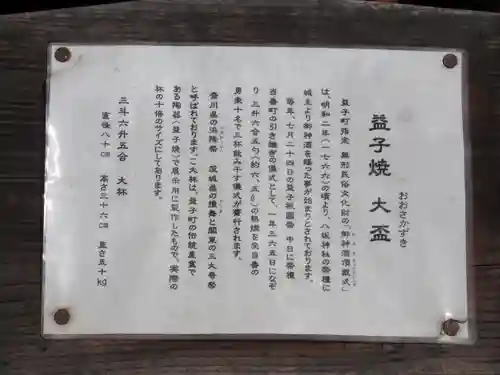 おおさかずき
益子焼 大盃
益子町指定 無形民俗文化財の「御神酒頂戴式」
は、明和二年(一七六六)の頃より、八坂神社の祭禮に
城主より御神酒を賜った事が始まりとされております。
毎年、七月二十四日の益子祇園祭 中日に祭禮
当番町の引き継ぎの儀式として、一年三六五日になぞ
り 三升六合五勺(約六、五ℓ)の熱燗を次当番の
勇案十名で三杯飲み干す儀式が齋行されます。
香川県の 茨城県の 関東の三大奇祭
と呼ばれております。この大杯は、益子町の伝統産業で
ある陶器(益子焼)で展示用に製作したもので、実際の
杯の十倍のサイズにしてあります。
三斗六升五合 大杯
直径八十㎝ 高さ三十六㎝ 重さ五十㎏